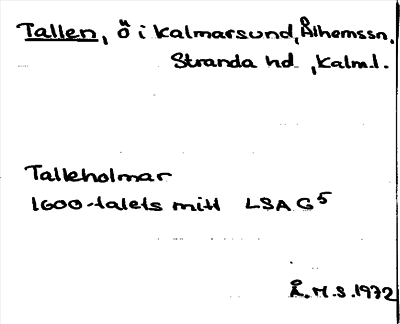 Tallen, ö i Kalmarsund, Ålhemssn.
Stranda hd., Kalm.l.
Talleholmar
1600-talets mitt LSA G5
Å.M.S.1972